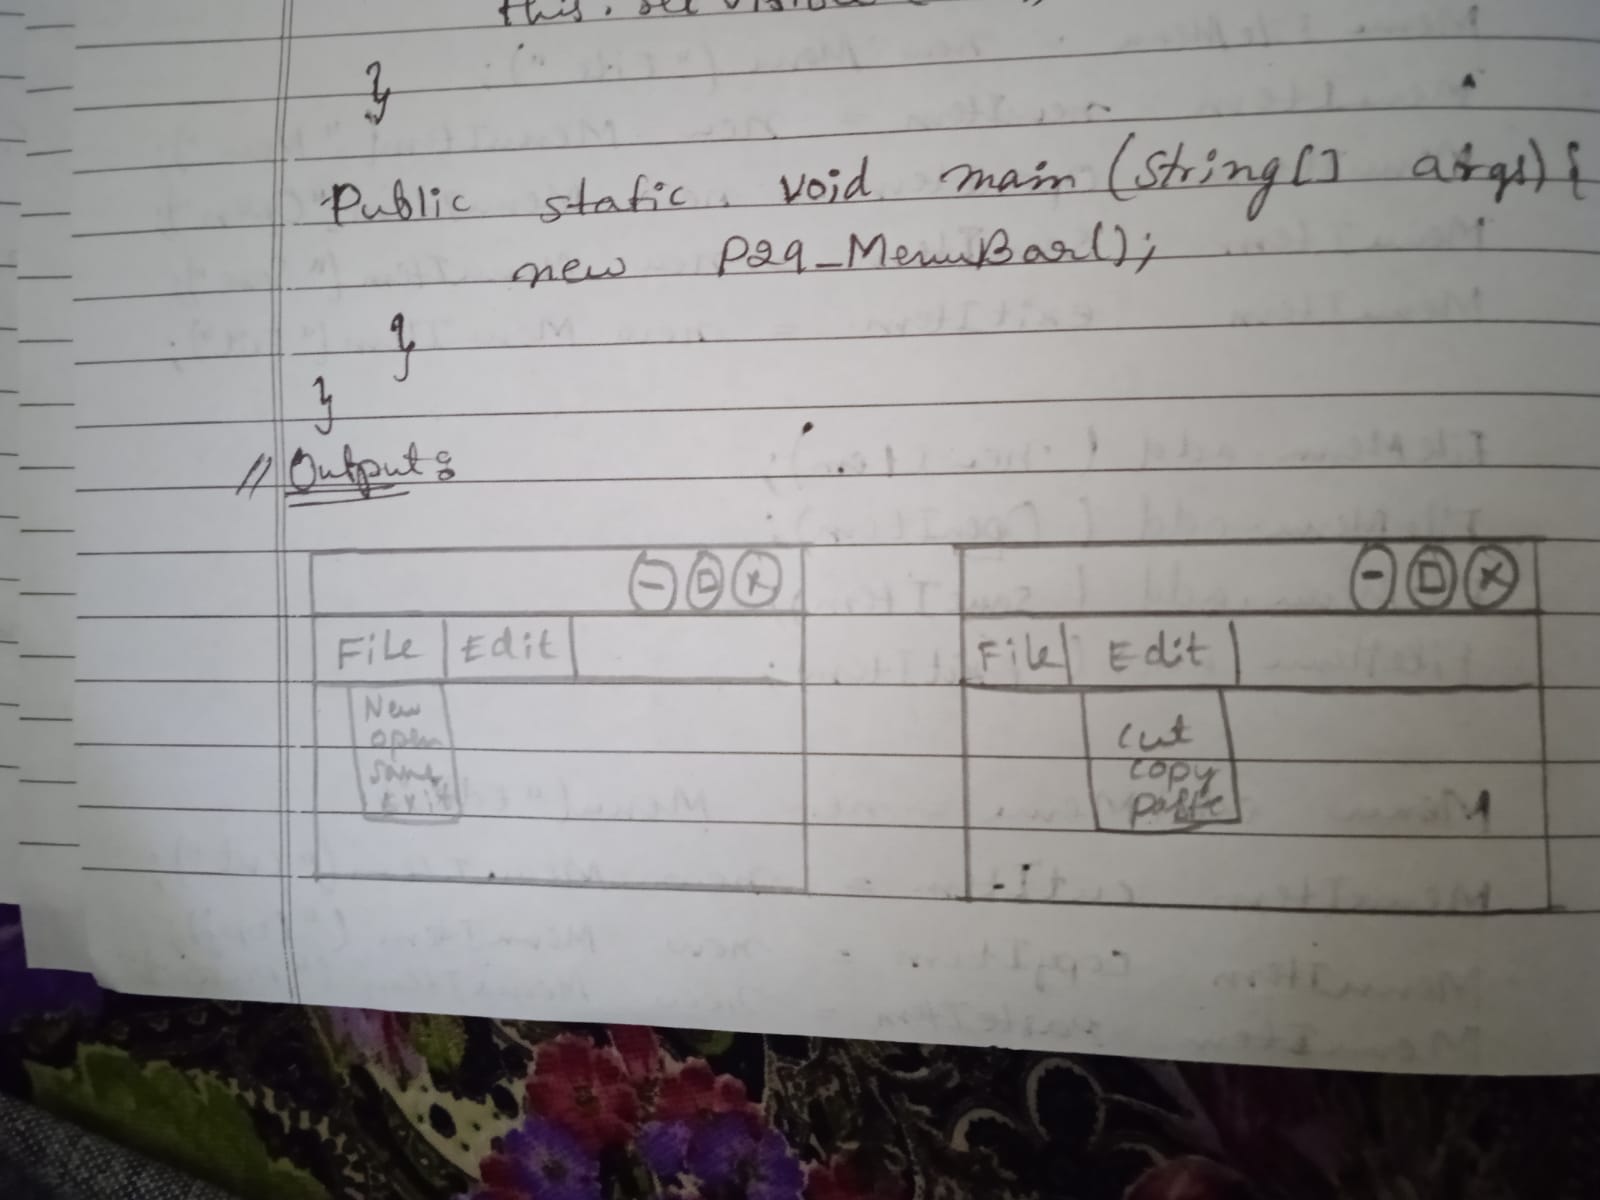 }
Public static void main (String[] args) {
new P29_MenuBar();
}
}
// Output :
File Edit
New
open
save
Exit
File Edit
Cut
copy
paste